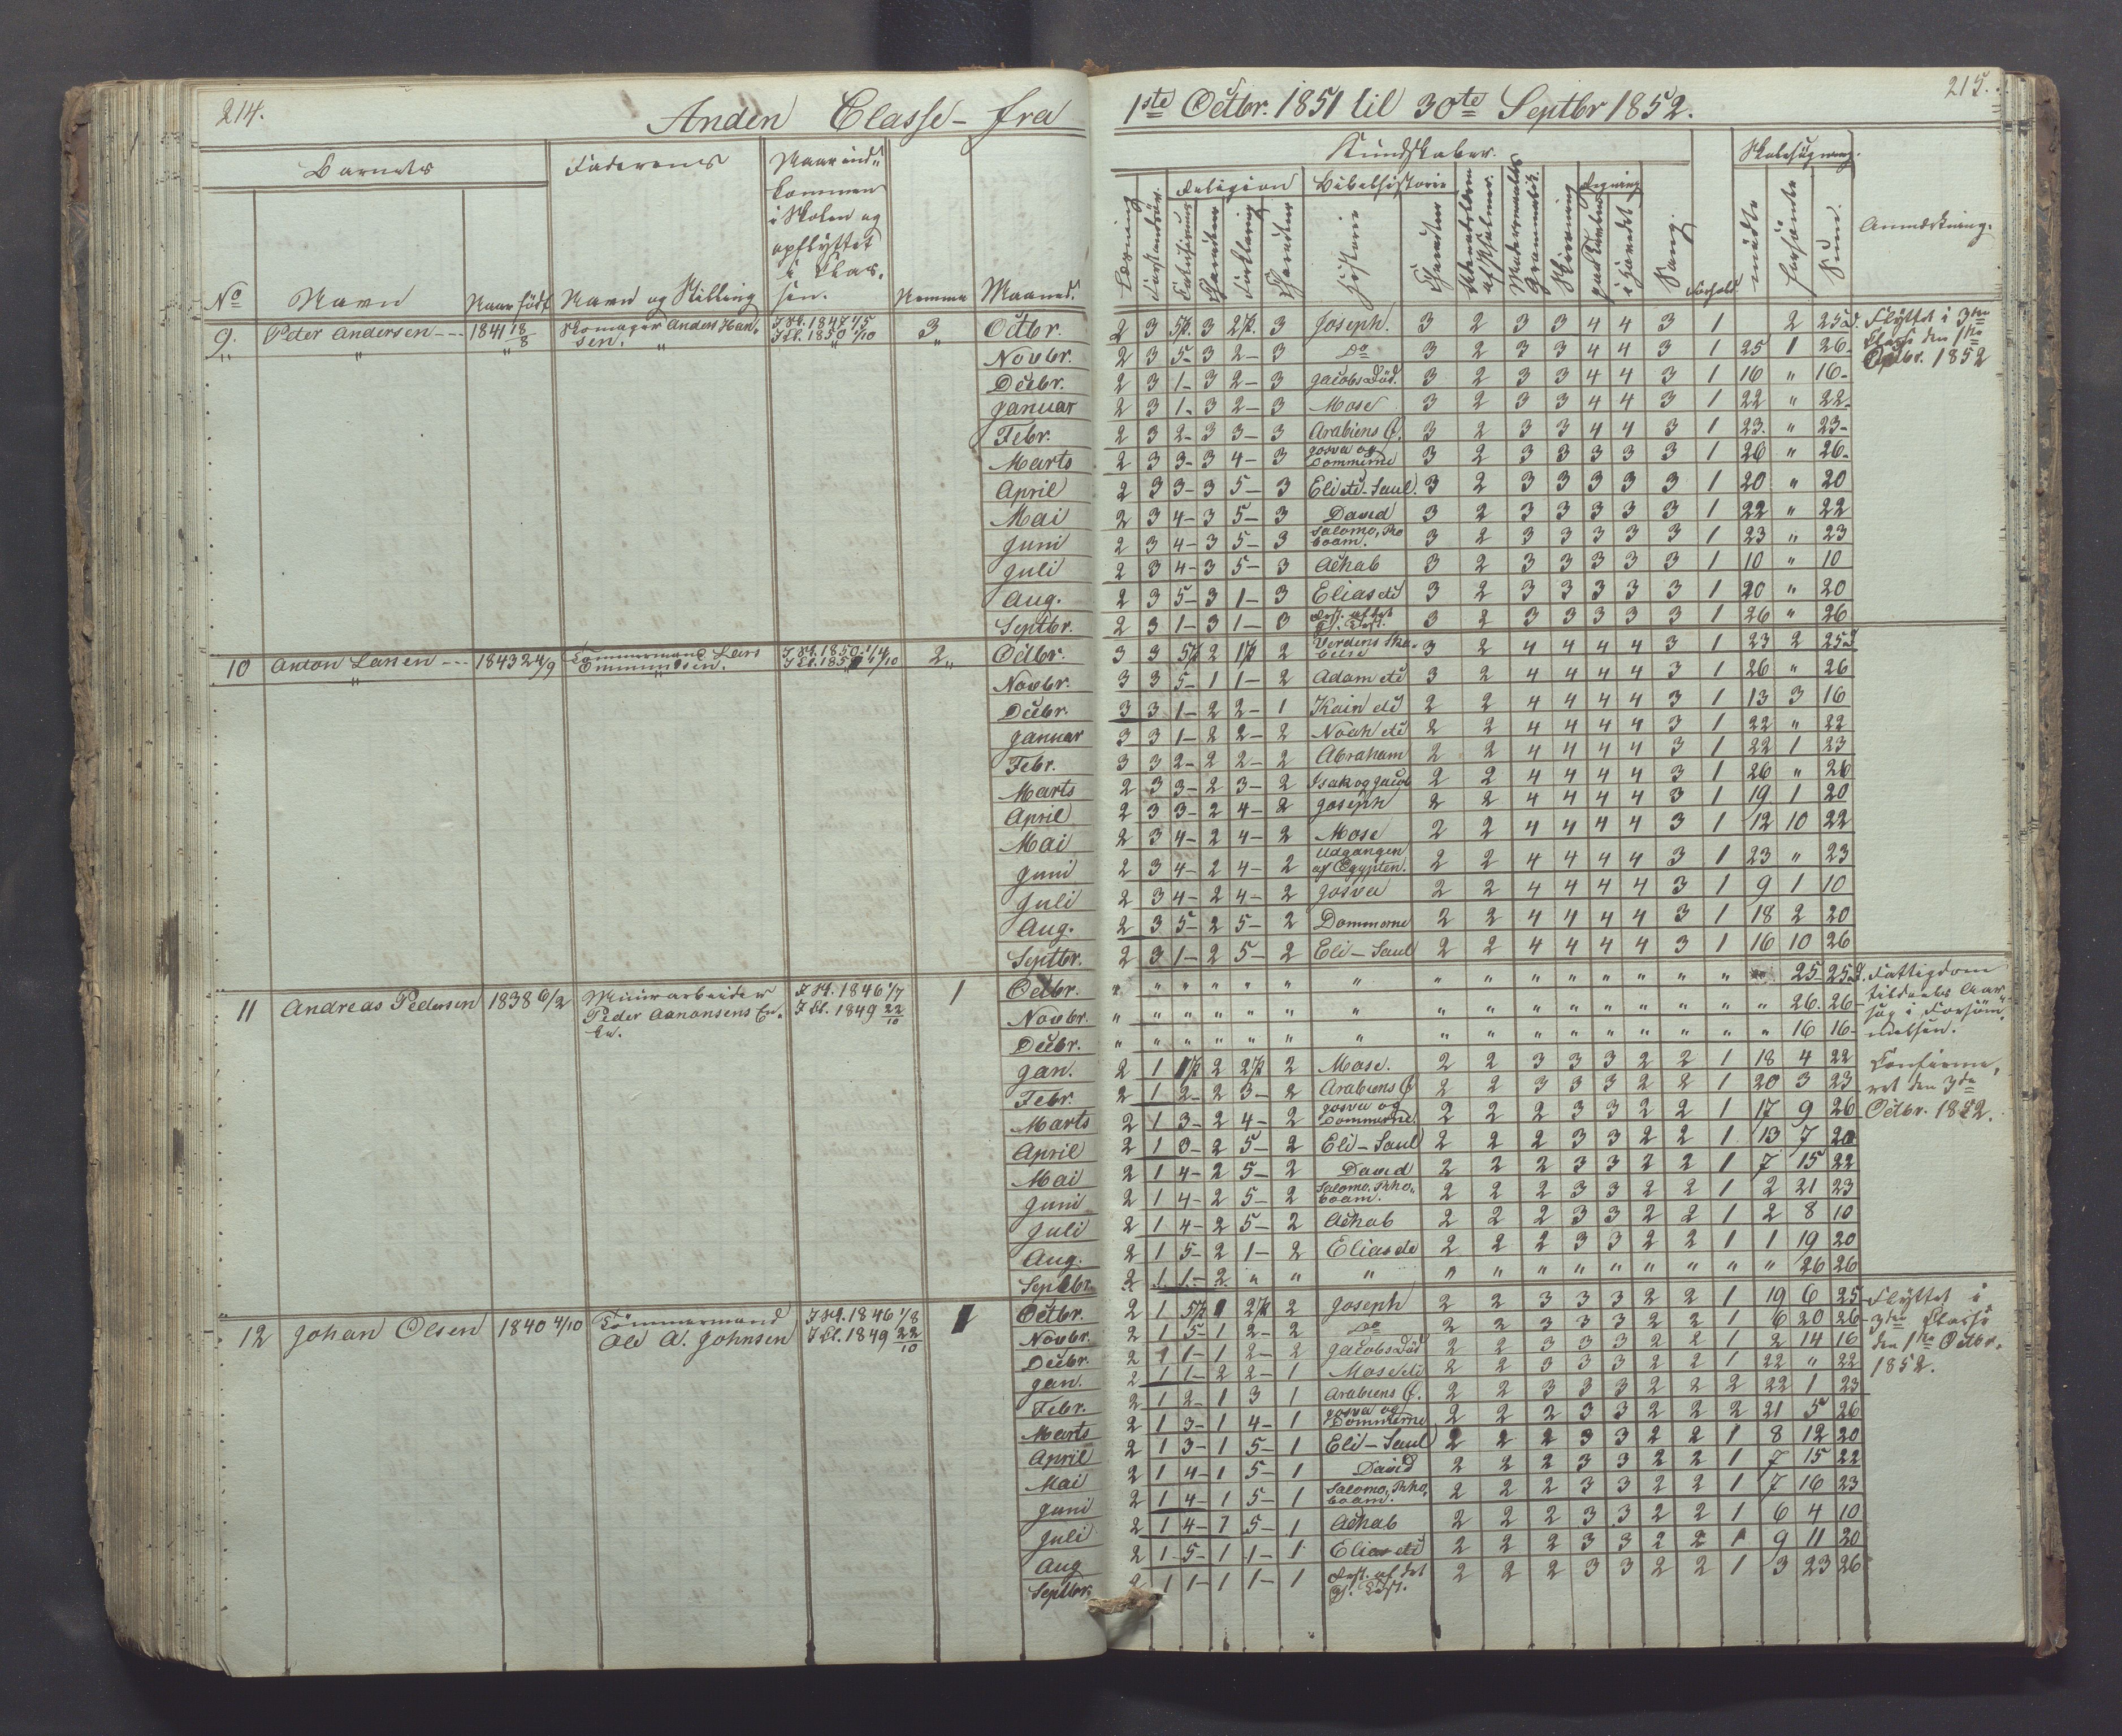 214.
Anden Classe - fra
Barnets
Faderens
Naar ind-
kommen
i Skolen og
opflyttet
i Clas-
sen.
No Navn Naar født Navn og Stilling Nemme Maaned.
9. Peter Andersen --- 1841 18/8 Skomager Anders Han- I Sk. 1847 1/5 3 Octbr.
" " " sen. I Cl. 1850 1/10 "
Novbr.
Decbr.
Januar
Febr.
Marts
April
Mai
Juni
Juli
Aug.
Septbr.
10 Anton Larsen --- 1843 24/9 Tømmermand Lars I Sk. 1850 1/4 2 " Octbr.
Novbr.
Decbr.
Januar
Febr.
Marts
April
Mai
Juni
Juli
Aug.
Septbr.
11 Andreas Pedersen 1838 6/2 Muurarbeider I Sk. 1846 1/7 1 Octbr.
Peder Aanonsens En- I Cl. 1849 22/10
ke.
Novbr.
Decbr.
Jan.
Febr.
Marts
April
Mai
Juni
Juli
Aug.
Septbr.
12 Johan Olsen 1840 4/10 Tømmermand I Sk. 1846 1/8 1 Octbr.
Ole A. Johnsen I Cl. 1849 22/10
Novbr.
Decbr.
Jan.
Febr.
Marts
April
Mai
Juni
Juli
Aug
Septbr.
215.
1ste Octbr. 1851 til 30te Septbr 1852.
Kundskaber.
Skolesøgning.
Religion Bibelhistorie Regning
Læsning Forstandsöv. Catechismus Charakteer Forklaring Charakteer Historie Charakteer Udenadslæren af Psalmer. Modersmaalets Grammatik. Skrivning paa Tavlen i Hovedet Sang. Forhold mødte forsømte Sum. Anmærkning.
2 3 5 3 2 3 Joseph. 3 2 3 3 4 4 3 1 2 25 Flyttet i 3die
2 3 5- 3 2- 3 Do 3 2 3 3 4 4 3 1 25 1 26- Classe den 1ste
2 3 1- 3 2- 3 Jacobs Død. 3 2 3 3 4 4 3 1 16 " 16- Octbr. 1852
2 3 1- 3 2- 3 Mose 3 2 3 3 4 4 3 1 22 " 22-
2 3 2- 3 3- 3 Arabiens Ø. 3 2 3 3 4 4 3 1 23. " 23-
2 3 3- 3 4- 3 Josva og Dommerne 3 2 3 3 3 3 3 1 26 " 26-
2 3 3- 3 5- 3 Eli etc - Saul. 3 2 3 3 3 3 3 1 20 " 20
2 3 4- 3 5- 3 David 3 2 3 3 3 3 3 1 22 " 22
2 3 4- 3 5- 3 Salomo, Rhoboam. 3 2 3 3 3 3 3 1 23 " 23
2 3 4- 3 5- 3 Achab 3 2 3 3 3 3 3 1 10 " 10
2 3 5- 3 1- 3 Elias etc 3 2 3 3 3 3 3 1 20 " 20
2 3 1- 3 1- 3 Rest. af det Gl. Test. 3 2 3 3 3 3 3 1 26 " 26
3 3 5 2 1 2 Verdens Skabelse 3 2 4 4 4 4 3 1 23 2 25
3 3 5- 1 1- 2 Adam etc 3 2 4 4 4 4 3 1 26 " 26
3 3 1- 2 2- 1 Kain etc 2 2 4 4 4 4 3 1 13 3 16
3 3 1- 2 2- 2 Noah etc 2 2 4 4 4 4 3 1 22 " 22
3 3 2- 2 2- 2 Abraham 2 2 4 4 4 4 3 1 22 1 23
2 3 3- 2 3- 2 Isak og Jacob 2 2 4 4 4 4 3 1 26 " 26
2 3 3- 2 4- 2 Joseph 2 2 4 4 4 4 3 1 19 1 20
2 3 4- 2 4- 2 Mose 2 2 4 4 4 4 3 1 12 10 22
2 3 4- 2 4- 2 Udgangen af Egypten. 2 2 4 4 4 4 3 1 23 " 23
2 3 4- 2 4- 2 Josva 2 2 4 4 4 4 3 1 9 1 10
2 3 5- 2 5- 2 Dommerne 2 2 4 4 4 4 3 1 18 2 20
2 3 1- 2 5- 2 Eli - Saul 2 2 4 4 4 4 3 1 16 10 26
" " " " " " " " " " " " " " " 25 25 Fattigdom
" " " " " " " " " " " " " " " " 26. 26- tildeels Aar-
" " " " " " " " " " " " " " " " 16 16- sag i Forsöm-
melsen.
2 1 1 2 2 2 Mose. 2 2 3 3 3 2 2 1 18 4 22 Confirme-
2 1 2- 2 3- 2 Arabiens Ø 2 2 3 3 3 2 2 1 20 3 23 ret den 3die
2 1 3- 2 4- 2 Josva og Dommerne. 2 2 2 3 3 2 2 1 17 9 26 Octbr. 1852.
2 1 3- 2 5- 2 Eli - Saul 2 2 2 3 3 2 2 1 13 7 20
2 1 4- 2 5- 2 David 2 2 2 3 3 2 2 1 7 15 22
2 1 4- 2 5- 2 Salomo, Rhoboam. 2 2 2 3 3 2 2 1 2 21 23
2 1 4- 2 5- 2 Achab 2 2 2 3 3 2 2 1 2 8 10
2 1 5- 2 1- 2 Elias etc 2 2 2 3 3 2 2 1 1 19 20
2 1 1- 2 " " " " " " " " " " " " 26 26
2 1 5 1 2 2 Joseph 2 2 3 3 3 2 2 1 19 6 25 Flyttet i
2 1 5- 1 2- 2 Do 2 2 3 3 3 2 2 1 6 20 26- 3die Classe
2 1 1- 1 2- 2 Jacobs Død 2 2 3 3 3 2 2 1 2 14 16 den 1ste Octbr.
2 1 1- 2 2- 1 Mose etc 2 2 3 3 3 2 2 1 22 " 22 1852.
2 1 2- 1 3 1 Arabiens Ø. 2 2 3 3 3 2 2 2 22 1 23
2 1 3- 1 4- 1 Josva og Dommerne 2 2 2 3 3 2 2 2 21 5 26
2 1 3- 1 5- 1 Eli - Saul 2 2 2 3 3 2 2 1 8 12 20
2 1 4- 1 5- 1 David 2 2 2 3 3 2 2 1 7 15 22
2 1 4- 1 5- 1 Salomo, Rhoboam. 2 2 2 3 3 2 2 1 7 16 23
2 1 4- 1 5- 1 Achab 2 2 2 3 3 2 2 1 6 4 10
2 1 5- 1 1- 1 Elias etc 2 2 2 3 3 2 2 1 9 11 20
2 1 1- 1 1- 1 Rest. af det Gl. Test. 2 2 2 3 3 2 2 1 3 23 26